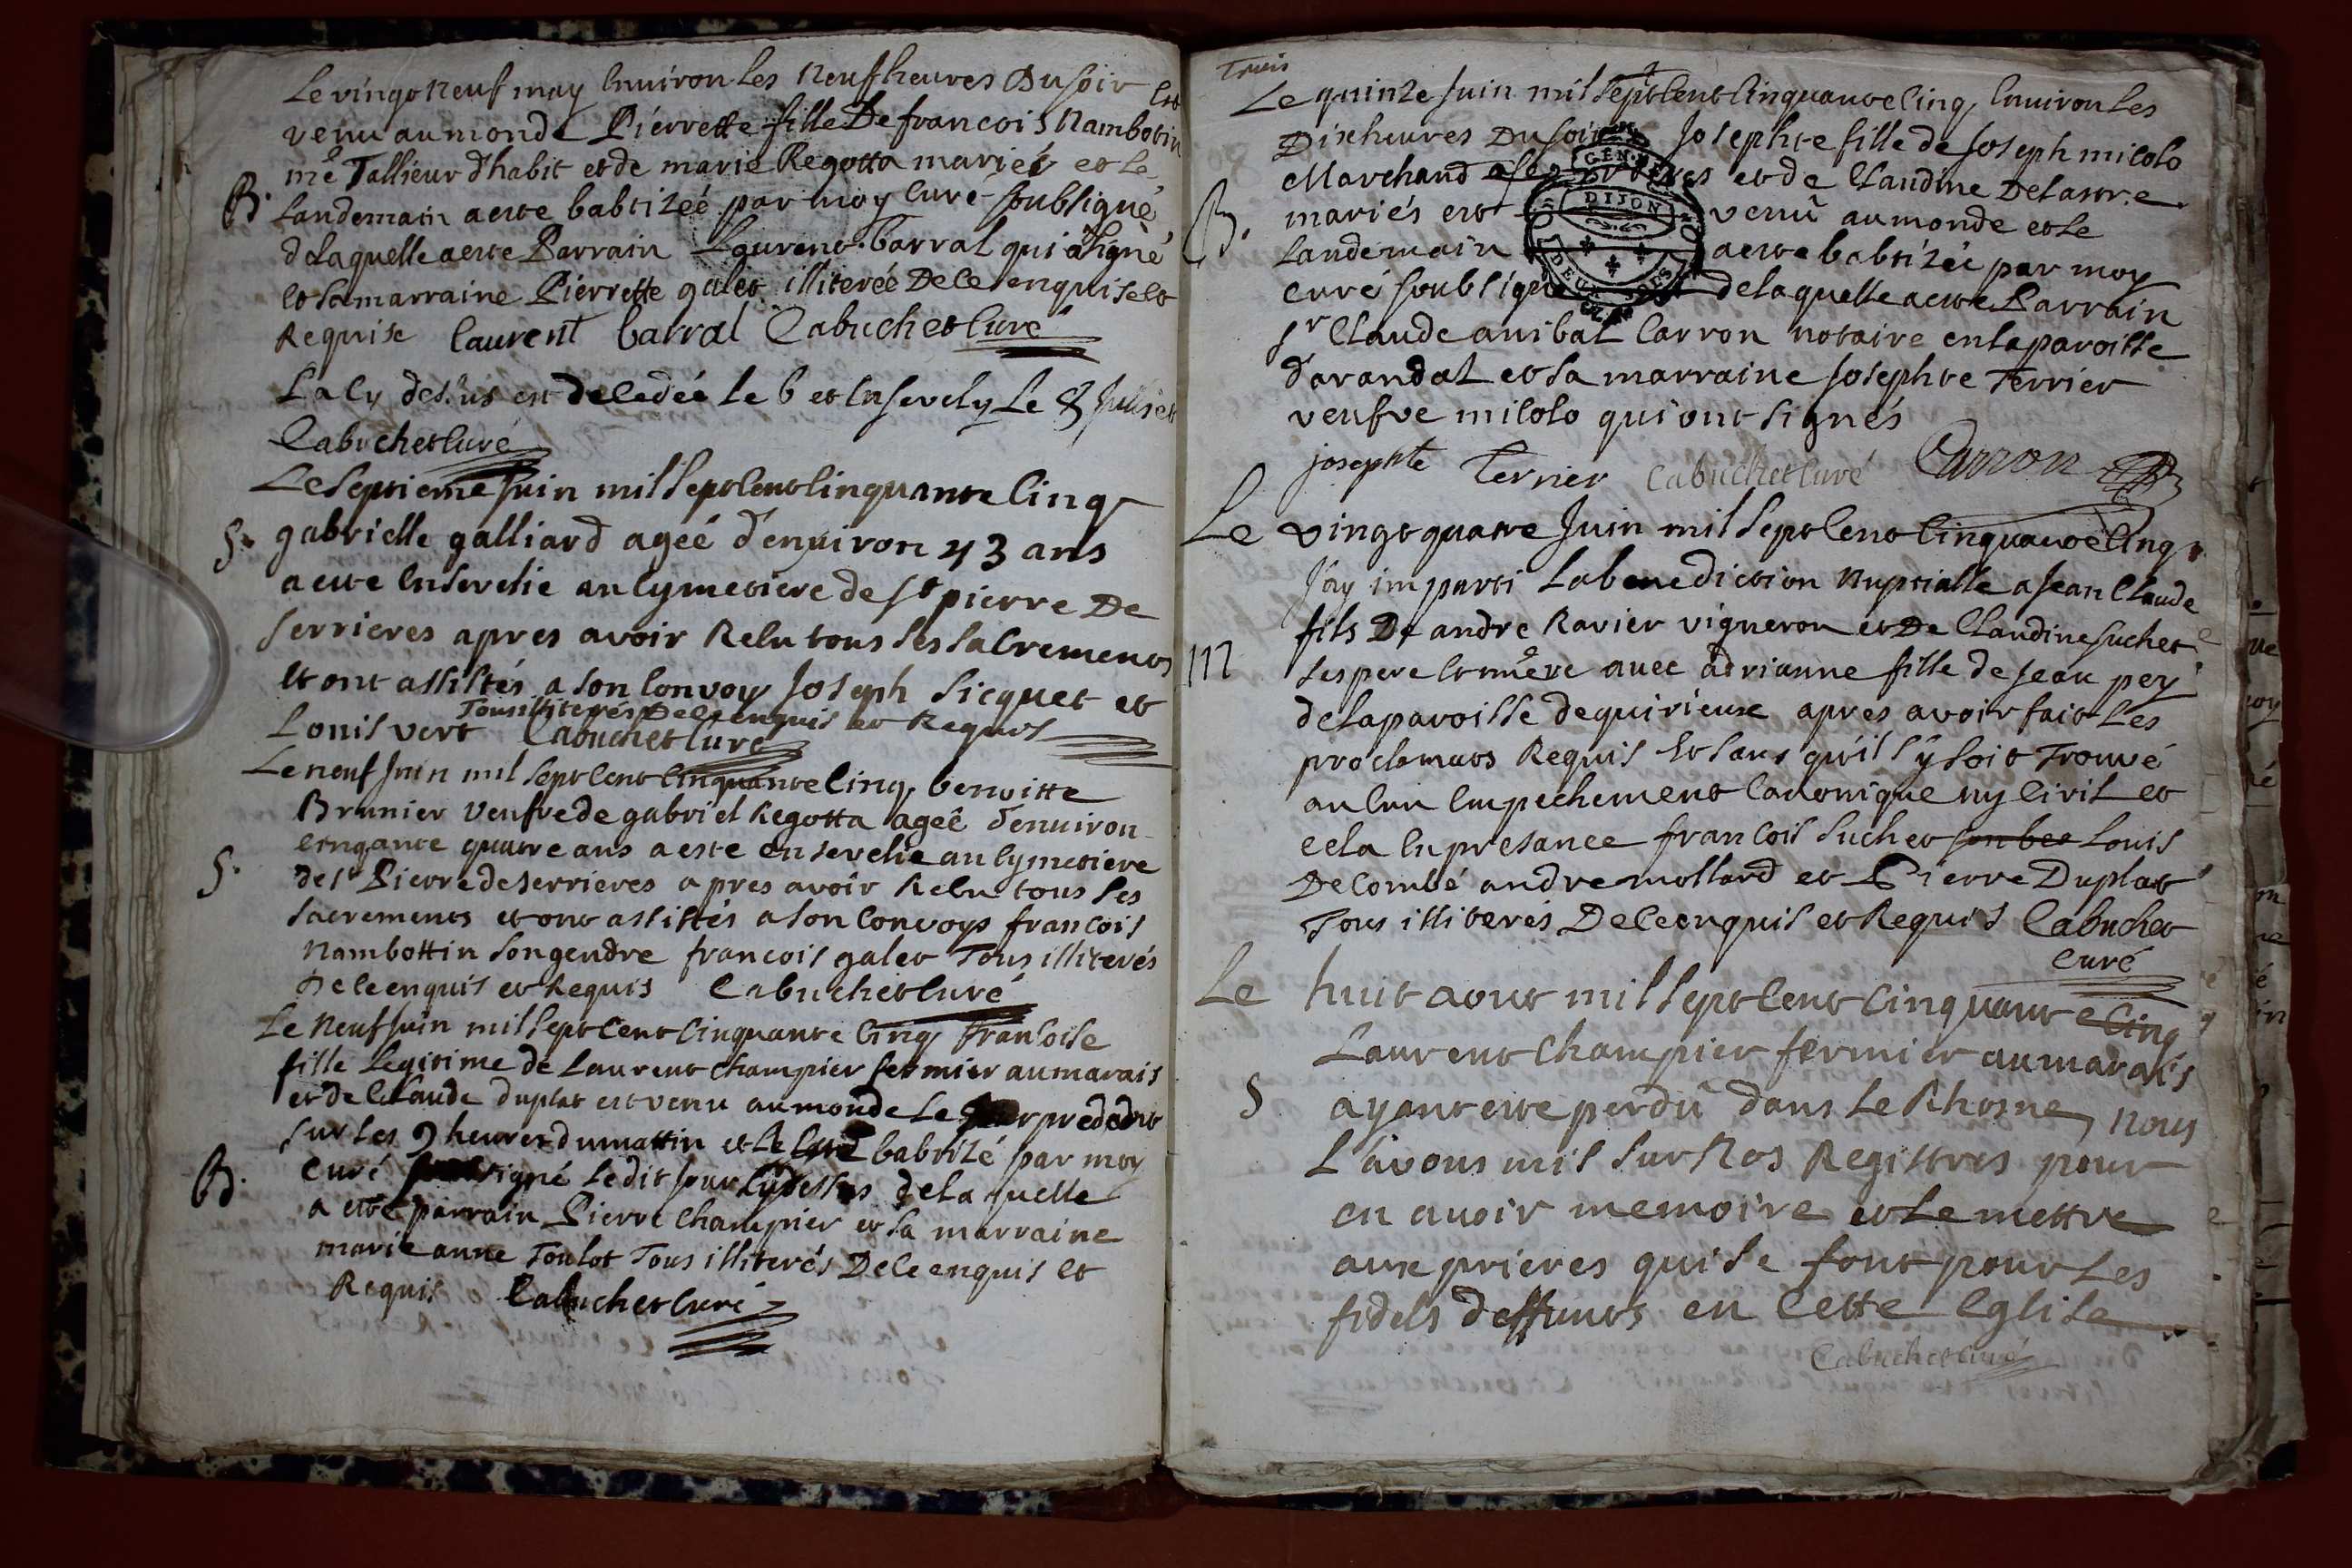 Le vingt neuf may Environ les neuf heures Du soir Est
venu au monde Pierrette fille De francois Nambotin
me Tallieur d'habit et de marie Regotta mariés et Le
B. Landemain a este babtizée par moy Curé soubsigné
d Laquelle a este Parrain Laurent barral qui a signé
et sa marraine Pierrette galet illiterée De ce enquise et
Requise laurent barral Cabuchet Curé
La cy dessus est decedée le 6 et Ensevely Le 8 Juillet
Cabuchet Curé
Le septieme Juin mil sept Cent Cinquante Cinq
S. gabrielle galliard ageé d'enuiron 43 ans
a este Ensevelie au Cymetiere de st pierre De
serrieres apres avoir Recu tous ses sacrements
et ont assistés a son Convoy Joseph sicquet et
Tous illiterés De ce enquis et Requis
Louis vert Cabuchet Curé
Le neuf Juin mil sept Cent Cinquante Cinq benoitte
Brunier Veufve de gabriel Regotta ageê d'enuiron
cinqante quatre ans a este ensevelie au Cymetiere
S. de st Pierre de serrieres apres avoir Recu tous ses
sacrements et ont assistés a son Convoys francois
Nambottin son gendre francois galet Tous illiterés
De ce enquis et Requis Cabuchet Curé
Le Neuf Juin mil sept Cent Cinquante Cinq francoise
fille Legitime de Laurent Champier fermier au marais
et de Claude duplat est venu au monde Le Jour prededent
sur Les 9 heures du mattin et Le babtizé par moy
B. Curé soubsigné Ledit Jour Cy dessus de La quelle
a esté parrain Pierre Champier et sa marraine
marie anne Toulot Tous illiterés De ce enquis et
Requis Cabuchet Curé
Trois
Le quinze Juin mil sept Cent Cinquante Cinq Environ Les
Dix heures Du soir Josephte fille de Joseph micolo
Marchand et de Claudine Delastre
B. mariés est venü au monde et Le
Landemain a este babtizée par moy
curé soubsigné de laquelle a este Parrain
sr Claude anibal Carron notaire en la paroisse
d'arandat et sa marraine Josephte Terrier
veufve micolo qui ont signés
josephte Terrier Cabuchet Curé Carron
Le vingt quatre Juin mil sept Cent Cinquante Cinq
J'ay imparti La benediction nuptialle a Jean Claude
fils De andre Ravier vigneron et De Claudine suchet
M ses pere et mere avec adrianne fille de Jean pey
de La paroisse de quirieux apres avoir fait Les
proclamats Requis et sans qu'il s'y soit Trouvé
aucun Empechement Canonique ny Civil et
cela En presance francois suchet Louis
De Combé andre mollard et Pierre Duplat
Tous illiterés De ce enquis et Requis Cabuchet
Curé
Le huit aout mil sept Cent Cinquante Cinq
Laurent Champier fermier au marais
S ayant este perdû dans Le Rhosne, nous
L'avons mis sur Nos Registres pour
en avoir memoire et Le mettre
aux prieres qui se font pour Les
fidels deffunts en Cette Eglise
Cabuchet Curé
GEN. DE
DIJON
DEUX SOLS